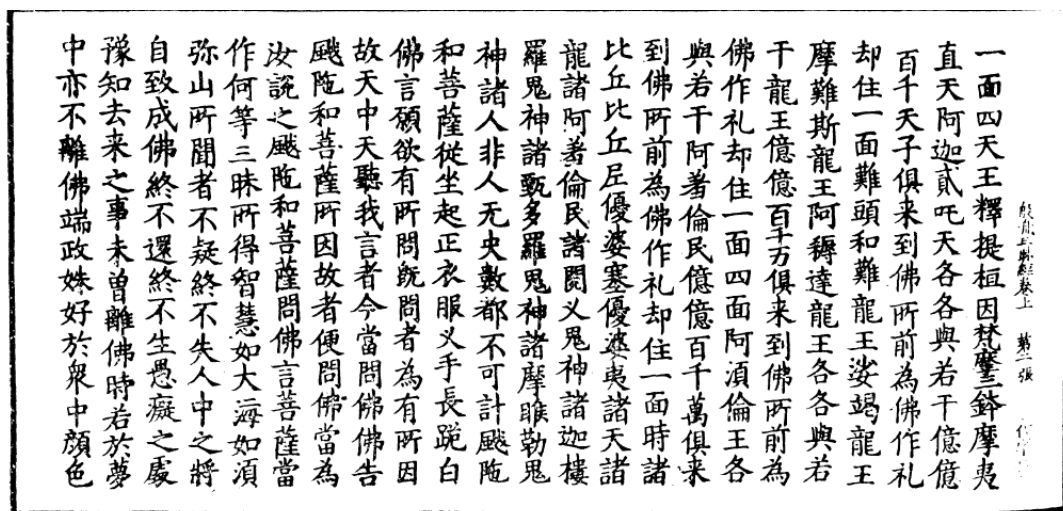 般舟三昧經卷上 第二張
一面四天王釋提桓因梵摩三鉢摩夷
直天阿迦貳吒天各各與若干億億
百千天子俱来到佛所前為佛作礼
却住一面難頭和難龍王娑竭龍王
摩難斯龍王阿耨達龍王各各與若
干龍王億億百千万俱来到佛所前為
佛作礼却住一面四面阿湏倫王各
與若干阿着倫民億億百千萬俱来
到佛所前為佛作礼却住一面時諸
比丘比丘尼優婆塞優婆夷諸天諸
龍諸阿着倫民諸閱叉鬼神諸迦樓
羅鬼神諸甄多羅鬼神諸摩睢勒鬼
神諸人非人无央數都不可計颰陁
和菩薩從坐起正衣服叉手長跪白
佛言願欲有所問既問者為有所因
故天中天聽我言者今當問佛佛告
颰陁和菩薩所因故者便問佛當為
汝說之颰陁和菩薩問佛言菩薩當
作何等三昧所得智慧如大海如湏
弥山所聞者不疑終不失人中之將
自致成佛終不還終不生愚癡之處
豫知去来之事未曾離佛時若於夢
中亦不離佛端政姝好於衆中顔色